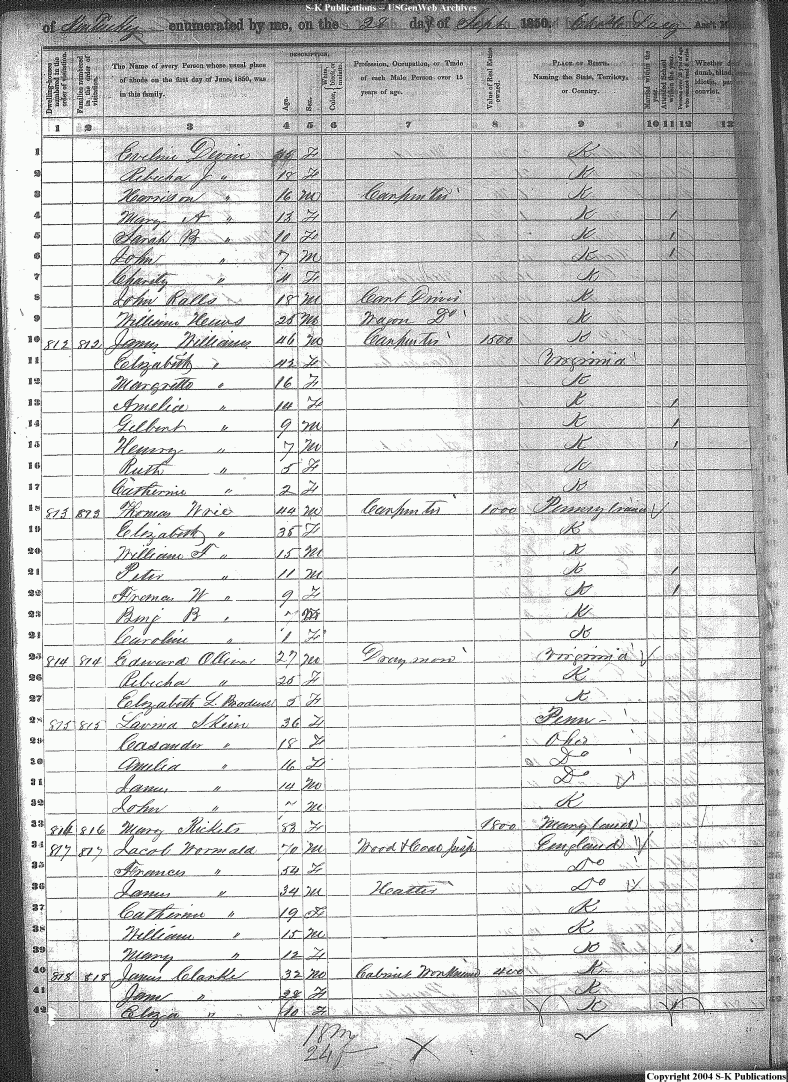 S-K Publications – USGenWeb Archives
of Kentucky enumerated by me, on the 28 day of Sept 1850. Ass't M
Dwelling-houses numbered in the order of visitation. Families numbered in the order of visitation. The Name of every Person whose usual place of abode on the first day of June, 1850, was in this family. DESCRIPTION. Age. Sex. Color, White, black, or mulatto. Profession, Occupation, or Trade of each Male Person over 15 years of age. Value of Real Estate owned. PLACE OF BIRTH. Naming the State, Territory, or Country. Married within the year. Attended School within the year. Persons over 20 y'rs of age who cannot read & write. Whether deaf and dumb, blind, idiotic, convict.
1 2 3 4 5 6 7 8 9 10 11 12 13
1 Eveline Devin F K
2 Rebecha J " 18 F K
3 Harrison " 16 M Carpenter K
4 Mary A " 13 F K 1
5 Sarah B " 10 F K 1
6 John " 7 M K 1
7 Charity " 4 F K
8 John Ralls 18 M Cart Driver K
9 William Hews 25 M Wagon Do K
10 812 812 James Williams 46 M Carpenter 1500 K
11 Elizabeth " 42 F Virginia
12 Margrette " 16 F K
13 Amelia " 14 F K 1
14 Gilbert " 9 M K 1
15 Henry " 7 M K 1
16 Ruth " 5 F K
17 Catherine " 2 F K
18 813 813 Thomas Wrie 44 M Carpenter 1000 Pennsylvania
19 Elizabeth " 35 F K
20 William F " 15 M K
21 Peter " 11 M K 1
22 Frances W " 9 F K 1
23 Benj B " K
24 Caroline " 1 F K
25 814 814 Edward Olliver 27 M Drayman Virginia
26 Rebecha " 25 F K
27 Elizabeth L. 5 F K
28 815 815 Lavina Skein 36 F Penn
29 Casander " 18 F Ohio
30 Amelia " 16 F Do
31 James " 14 M Do
32 John " 7 M K
33 816 816 Mary Rickets 83 F 1800 Maryland
34 817 817 Jacob Wormald 70 M Wood & Coal England
35 Frances " 54 F Do
36 James " 34 M Hatter Do
37 Catherine " 19 F K
38 William " 15 M K
39 Mary " 12 F K 1
40 818 818 James Clarke 32 M Cabinet Workman 400 K
41 Jane " 28 F K
42 Eliza " 10 F K 1
18 M
24 F
Copyright 2004 S-K Publications